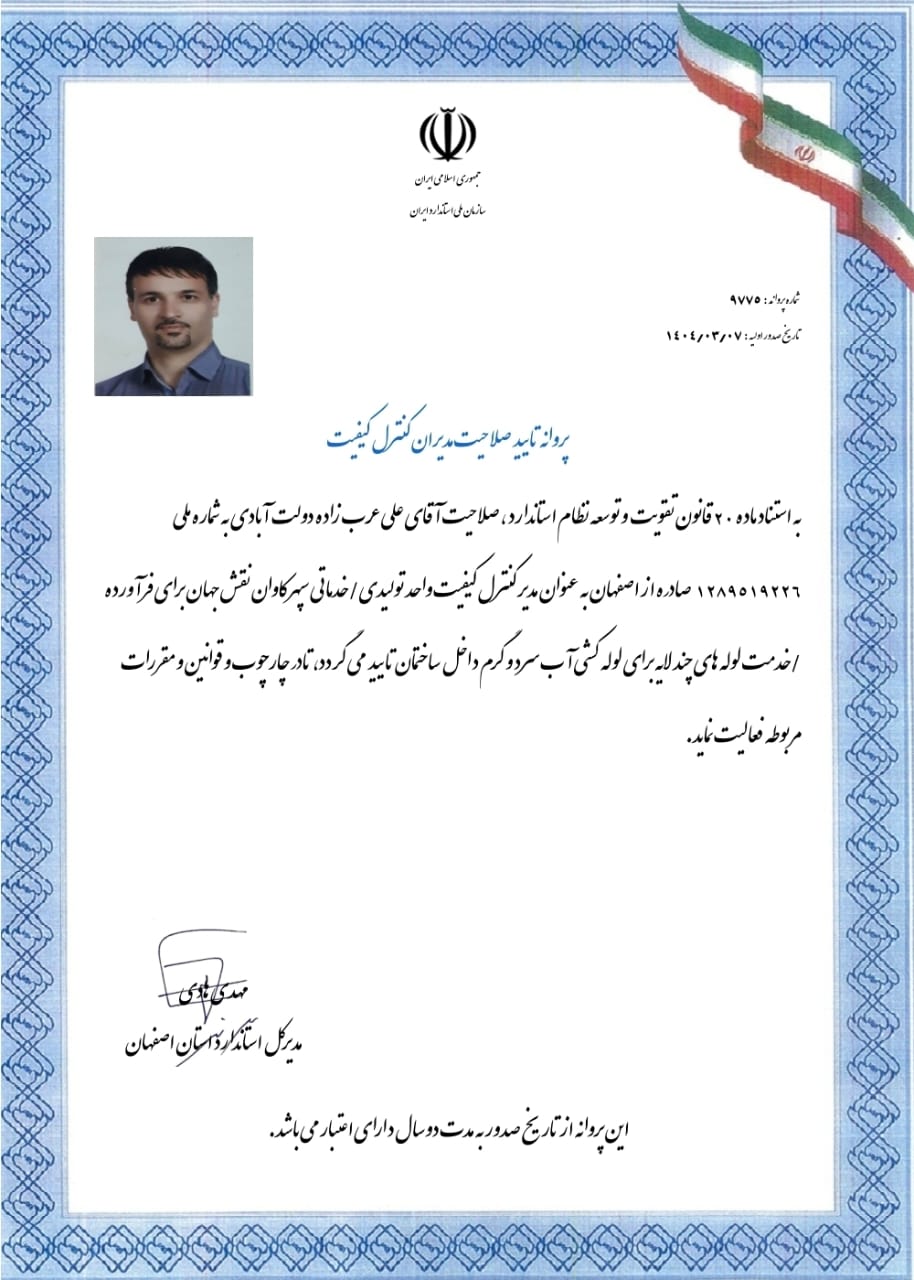 جمهوری اسلامی ایران
سازمان ملی استاندارد ایران
شماره پروانه : ۹۷۷۵
تاریخ صدور اولیه : ۱۴۰۴/۰۳/۰۷
پروانه تایید صلاحیت مدیران کنترل کیفیت
به استناد ماده ۲۰ قانون تقویت و توسعه نظام استاندارد، صلاحیت آقای علی عرب زاده دولت آبادی به شماره ملی
۱۲۸۹۵۱۹۲۲۶ صادره از اصفهان به عنوان مدیر کنترل کیفیت واحد تولیدی / خدماتی سپهر کاوان نقش جهان برای فرآورده
/ خدمت لوله های چند لایه برای لوله کشی آب سرد و گرم داخل ساختمان تایید می گردد، تا در چارچوب و قوانین و مقررات
مربوطه فعالیت نماید.
مهدی هادی
مدیرکل استاندارد استان اصفهان
این پروانه از تاریخ صدور به مدت دو سال دارای اعتبار می باشد.